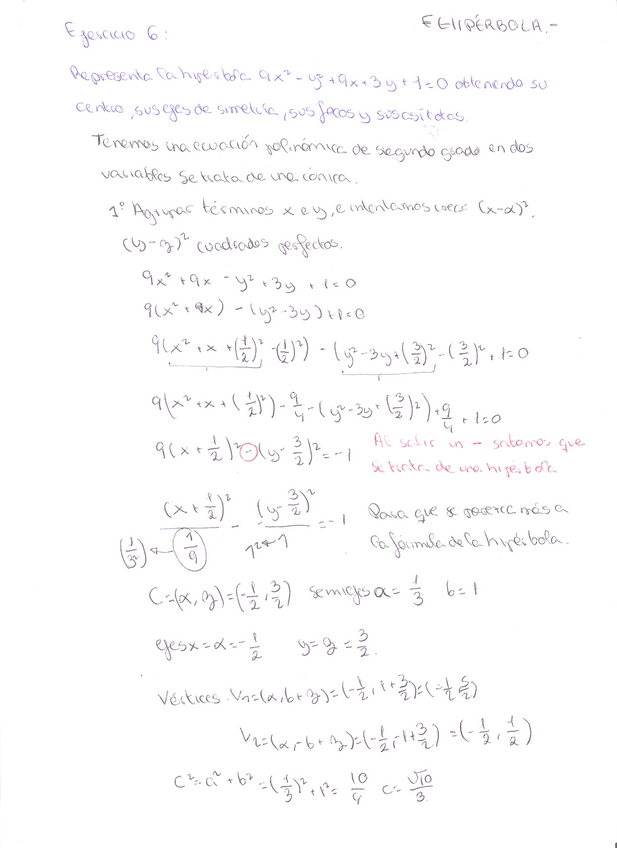 Ejercicio 6:
HIPÉRBOLA.-
Representa la hipérbola 9x² - y² + 9x + 3y + 1 = 0 obteniendo su
centro, sus ejes de simetría, sus focos y sus asíntotas.
Tenemos una ecuación polinómica de segundo grado en dos
variables se trata de una cónica.
1º Agrupar términos x e y, e intentamos crear (x-α)²,
(y-z)² cuadrados perfectos.
9x² + 9x - y² + 3y + 1 = 0
9(x² + x) - (y² - 3y) + 1 = 0
9(x² + x + (1/2)² - (1/2)²) - (y² - 3y + (3/2)² - (3/2)² + 1 = 0
9(x² + x + (1/2)²) - 9/4 - (y² - 3y + (3/2)²) + 9/4 + 1 = 0
9(x + 1/2)² - (y - 3/2)² = -1 Al salir un - sabemos que
se trata de una hipérbola
(x + 1/2)² / (1/9) - (y - 3/2)² / 1 = -1 Para que se parezca más a
(1/3²) ← 1/9 1² ← 1 la fórmula de la hipérbola.
C = (α, z) = (-1/2, 3/2) semiejes a = 1/3 b = 1
ejes x = α = -1/2 y = z = 3/2.
Vértices. V₁ = (α, b + z) = (-1/2, 1 + 3/2) = (-1/2, 5/2)
V₂ = (α, -b + z) = (-1/2, -1 + 3/2) = (-1/2, 1/2)
c² = a² + b² = (1/3)² + 1² = 10/9 c = √10/3